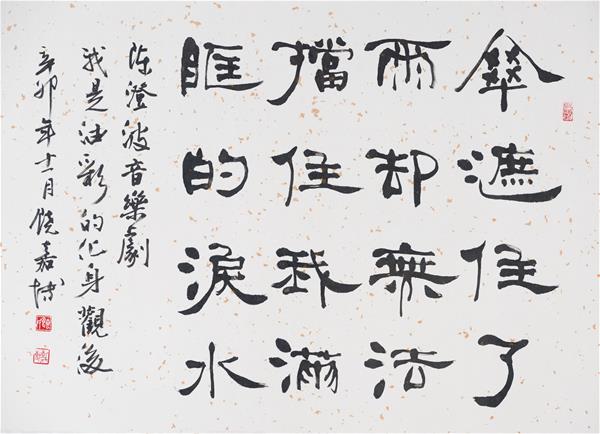 傘遮住了
雨却無法
擋住我滿
眶的淚水
陈澄波音樂劇
我是油彩的化身觀後
辛卯年十一月饶嘉博